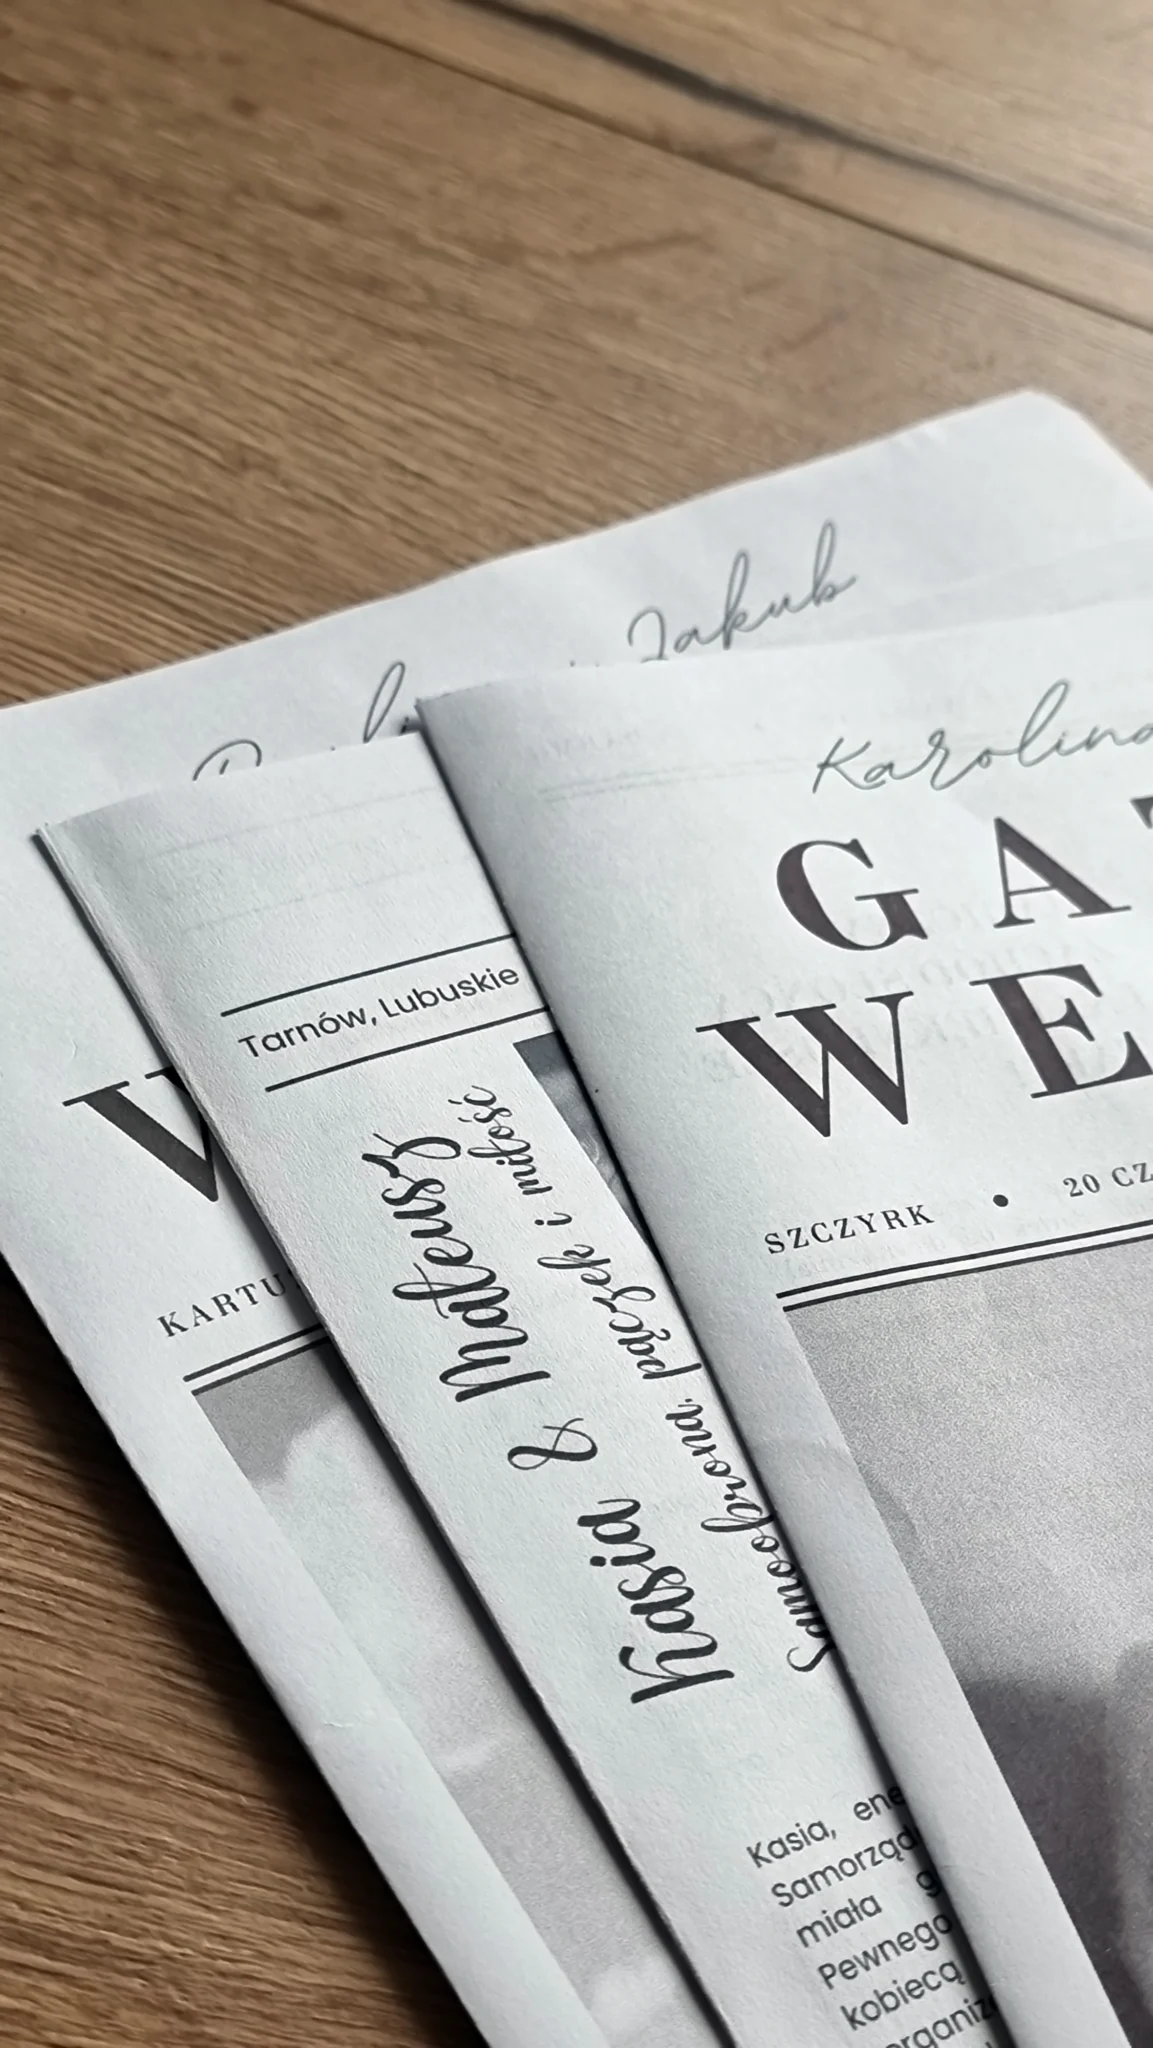 Jakub
KARTU
Tarnów, Lubuskie
Kasia & Mateusz
Samoobrona, pączek i miłość
Kasia, ene
Samorząd
miała g
Pewnego
kobiecą
organiz
Karolina
GA
WE
SZCZYRK • 20 CZ